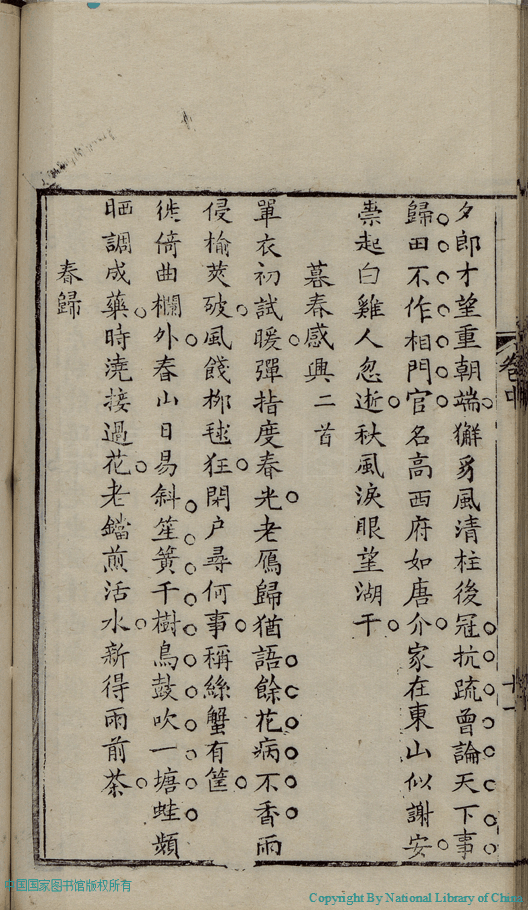 夕郎才望重朝端獬豸風清柱後冠抗疏曾論天下事
歸田不作相門官名高西府如唐介家在東山似謝安
祟起白雞人忽逝秋風淚眼望湖干
暮春感興二首
單衣初試暖彈指度春光老鴈歸猶語餘花病不香雨
侵榆莢破風餞桞毬狂閉户尋何事稱絲蟹有筐
徙倚曲欄外春山日易斜笙簧千樹鳥鼓吹一塘蛙頻
晒調成藥時澆接過花老鐺煎活水新得雨前茶
春歸
卷中
十一
中国国家图书馆版权所有
Copyright By National Library of China